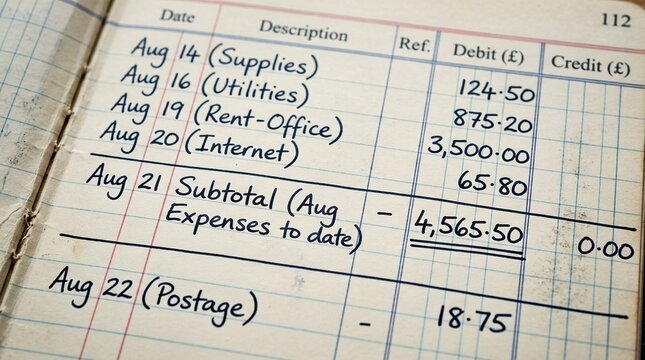 112
Date Description Ref. Debit (£) Credit (£)
Aug 14 (Supplies) 124·50
Aug 16 (Utilities) 875·20
Aug 19 (Rent-Office) 3,500·00
Aug 20 (Internet) 65·80
Aug 21 Subtotal (Aug - 4,565·50 0·00
Expenses to date)
Aug 22 (Postage) - 18·75